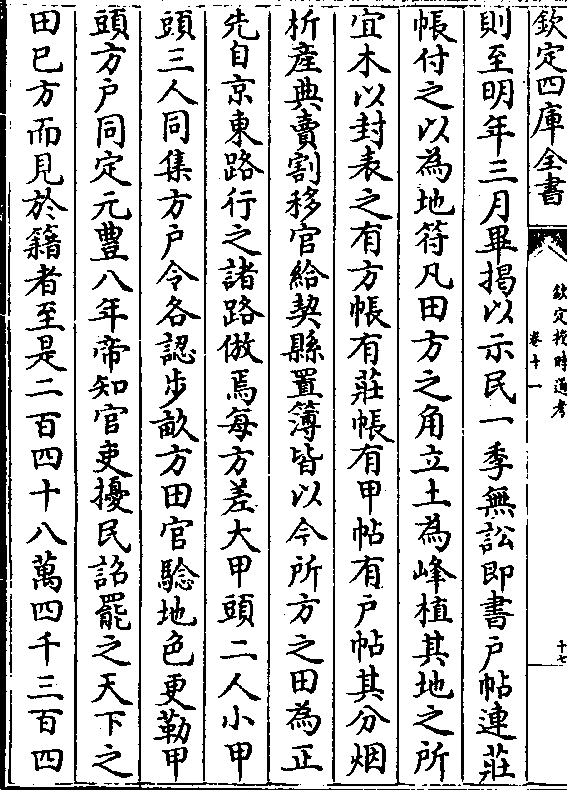 欽定四庫全書
欽定授時通考
卷十一
十七
則至明年三月畢揭以示民一季無訟即書户帖連莊
帳付之以為地符凡田方之角立土為峰植其地之所
宜木以封表之有方帳有莊帳有甲帖有户帖其分烟
析產典賣割移官給契縣置簿皆以今所方之田為正
先自京東路行之諸路倣焉每方差大甲頭二人小甲
頭三人同集方户令各認步畝方田官驗地色更勒甲
頭方户同定元豐八年帝知官吏擾民詔罷之天下之
田已方而見於籍者至是二百四十八萬四千三百四